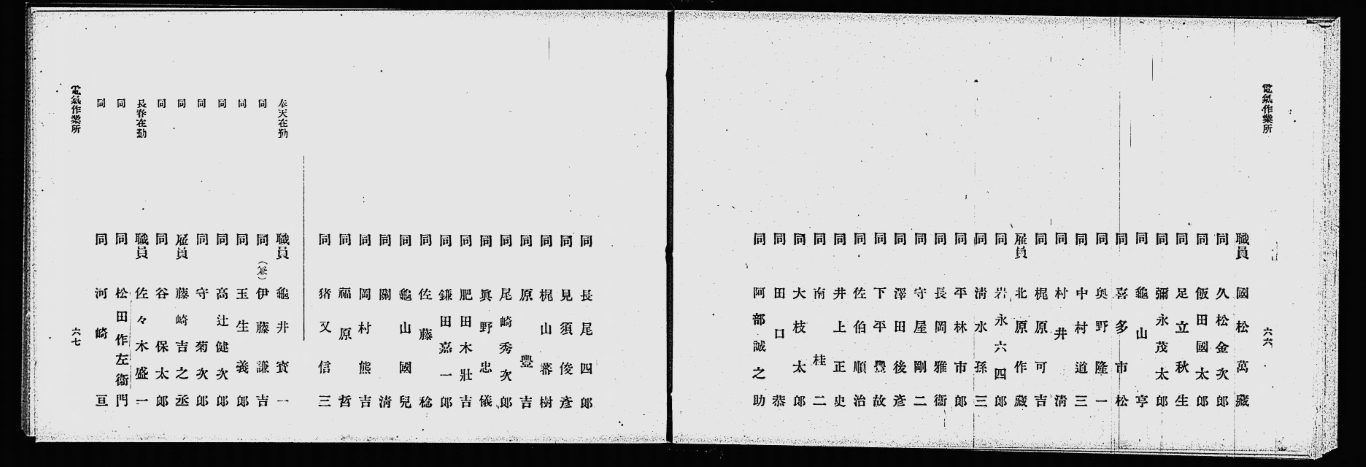 電氣作業所
六六
職員 國松萬藏
同 久松金次郎
同 飯田國太郎
同 足立秋生
同 彌永茂太郎
同 龜山亨
同 喜多市松
同 奥野隆一
同 中村道三
同 村井淸
同 梶原可吉
雇員 北原作藏
同 岩永六四郎
同 淸水孫三
同 平林市郎
同 長岡雅衞
同 守屋剛二
同 澤田後彥
同 下平豊故
同 佐伯順治
同 井上正史
同 南桂二
同 大枝太郎
同 田口恭
同 阿部誠之助
同 長尾四郎
同 見須俊彥
同 梶山蕃樹
同 原豐吉
同 尾崎秀次郎
同 眞野忠儀
同 肥田木壯吉
同 鎌田嘉一郎
同 佐藤稔
同 龜山國兒
同 關淸
同 岡村熊吉
同 福原哲
同 猪又信三
奉天在勤 職員 龜井寳一
同 同(兼)伊藤謙吉
同 同 玉生義郎
同 同 高辻健次郎
同 同 守菊次郎
同 雇員 藤崎吉之丞
同 同 谷保太郎
長春在勤 職員 佐々木盛一
同 同 松田作左衞門
同 同 河崎亘
電氣作業所
六七